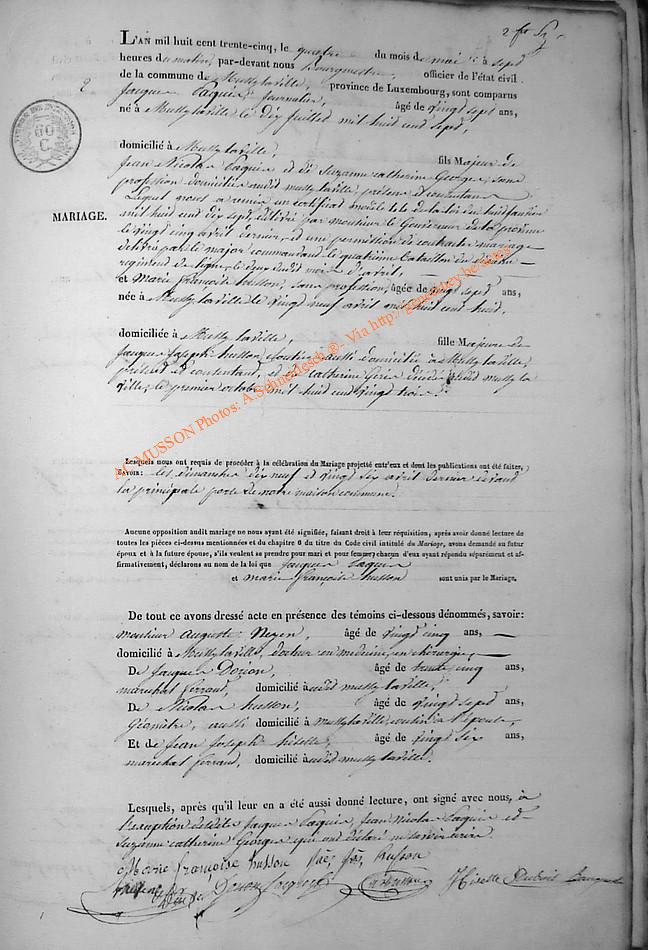 2
L'AN mil huit cent trente-cinq, le quatre du mois de mai à sept
heures du matin, par-devant nous Bourgmestre, officier de l'état civil
de la commune de Mussy la ville, province de Luxembourg, sont comparus
Jacques Laquir, Journalier, âgé de vingt sept ans,
né à Mussy la ville le dix juillet mil huit cent sept,
domicilié à Mussy la ville,
fils Majeur de
Jean Nicolas Laquir et de Suzanne Catherine George, sans
profession domiciliés audit mussy la ville, présens et consentans
Lequel nous a remis un certificat modèle de la loi du huit
MARIAGE.
mil huit cent dix sept, délivré par monsieur le Gouverneur de la province
le vingt cinq avril dernier, et une permission de contracter mariage
délivré par le major commandant le quatrième bataillon du
regiment de ligne, le deux dudit mois d'avril,
et Marie françoise husson, sans profession, âgée de vingt sept ans,
née à Mussy la ville le vingt neuf avril mil huit cent huit,
domiciliée à Mussy la ville,
fille Majeure de
Jacques Joseph husson, aussi domicilié à Mussy la ville,
présent et consentant, et de Catherine décédée audit mussy la
ville, le premier octobre mil huit cent vingt trois
AC MUSSON Photos: A.Schneidesch ®- Via http://geneancy.be/sages
Lesquels nous ont requis de procéder à la célébration du Mariage projetté entr'eux et dont les publications ont été faites,
SAVOIR: les dimanches dix neuf et vingt six avril dernier devant
la principale porte de notre maison commune.
Aucune opposition audit mariage ne nous ayant été signifiée, faisant droit à leur réquisition, après avoir donné lecture de
toutes les pièces ci-dessus mentionnées et du chapitre 6 du titre du Code civil intitulé du Mariage, avons demandé au futur
époux et à la future épouse, s'ils veulent se prendre pour mari et pour femme; chacun d'eux ayant répondu séparément et af-
firmativement, déclarons au nom de la loi que Jacques Laquir
et marie françoise husson sont unis par le Mariage.
De tout ce avons dressé acte en présence des témoins ci-dessous dénommés, savoir:
monsieur Auguste Neyen, âgé de vingt cinq ans,
domicilié à Mussy la ville, docteur en médecine, en chirurgie,
De Jacques Douon, âgé de trente cinq ans,
marechal ferrant, domicilié audit mussy la ville,
De Nicolas husson, âgé de vingt sept ans,
Géomètre, aussi domicilié à mussy la ville, cousin à l'épouse,
Et de Jean Joseph hiselle, âgé de vingt six ans,
marechal ferrant, domicilié audit mussy la ville.
Lesquels, après qu'il leur en a été aussi donné lecture, ont signé avec nous, à
l'exception desdits Jacques Laquir, Jean Nicolas Laquir et
Suzanne Catherine George qui ont déclaré ne savoir écrire.
Marie françoise husson
Hiselle Dubois